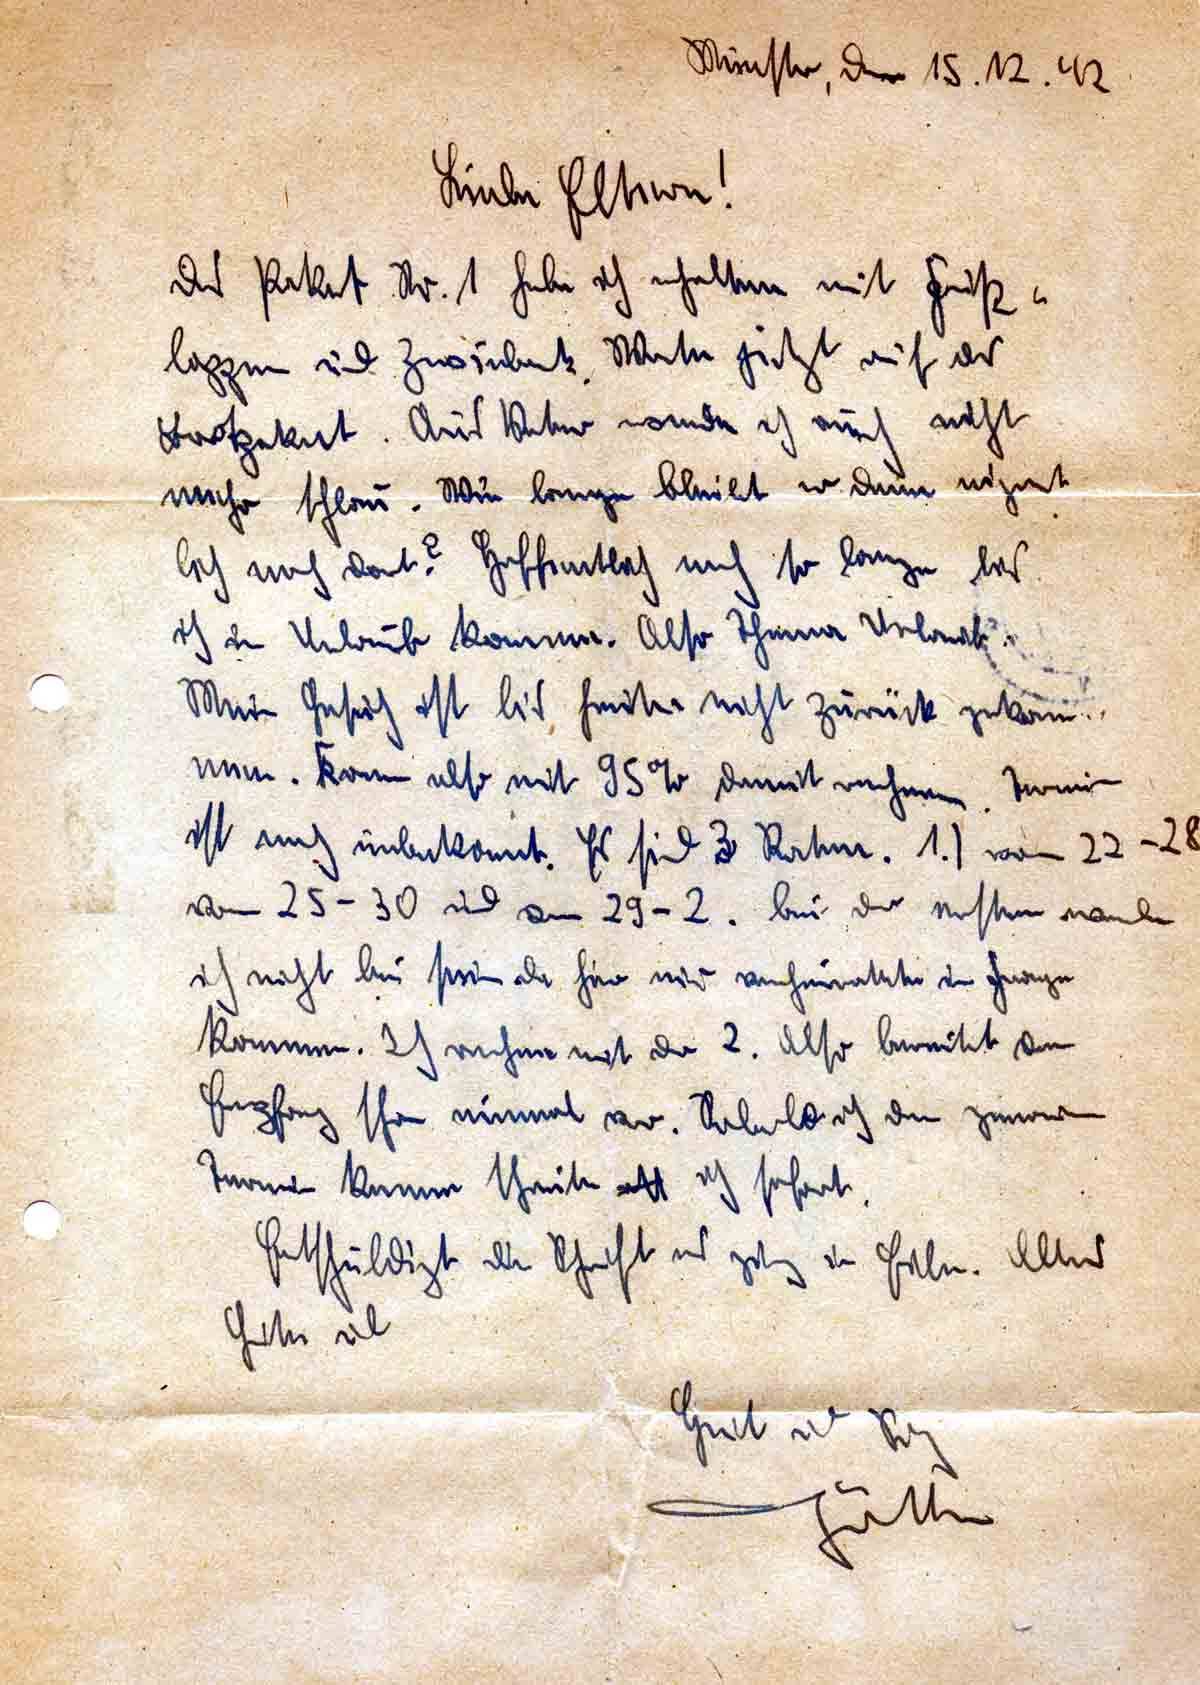 Münster, den 15.12.42
Liebe Eltern!
Das Paket Nr. 1 habe ich erhalten mit Fuß-
lappen und Zwieback. Warte jetzt auf das
Brotpaket. Aus Vater werde ich auch nicht
mehr schlau. Wie lange bleibt er denn eigent-
lich noch dort? Hoffentlich noch so lange bis
ich in Urlaub komme. Also Thema Urlaub:
Mein Gesuch ist bis heute nicht zurück gekom-
men. Kann also mit 95% damit rechnen. Termin
ist noch unbekannt. Es sind 3 Raten. 1.) vom 22-28
vom 25-30 und vom 29-2. bei der ersten werde
ich nicht bei sein da hier nur verheiratete in Frage
kommen. Ich rechne mit der 2. Also bereitet den
Empfang schon einmal vor. Sobald ich den genauen
Termin kenne schreibe ich sofort.
Entschuldigt die Schrift es ging in Eile. Alles
Gute und
Gruß und